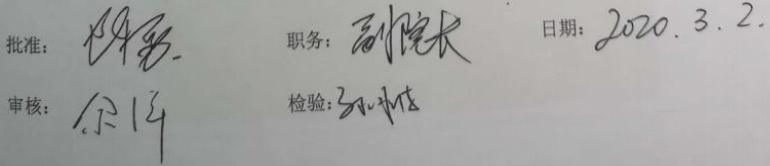 批准： 职务：副院长 日期：2020.3.2.
审核： 检验：